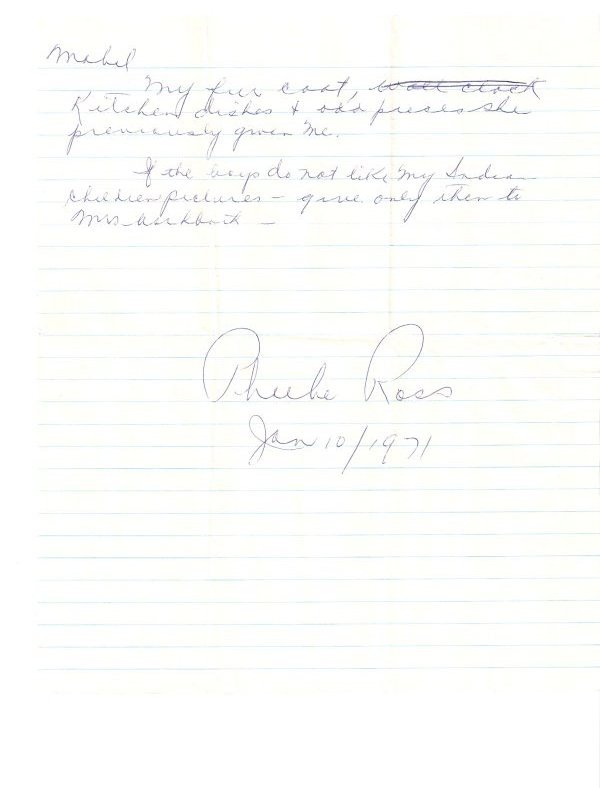 Mabel
My fur coat, wall clock
Kitchen dishes & odd pieces she
previously given me.
If the boys do not like my Indian
children pictures - give only them to
Mrs -
Phoebe Ross
Jan 10/1971